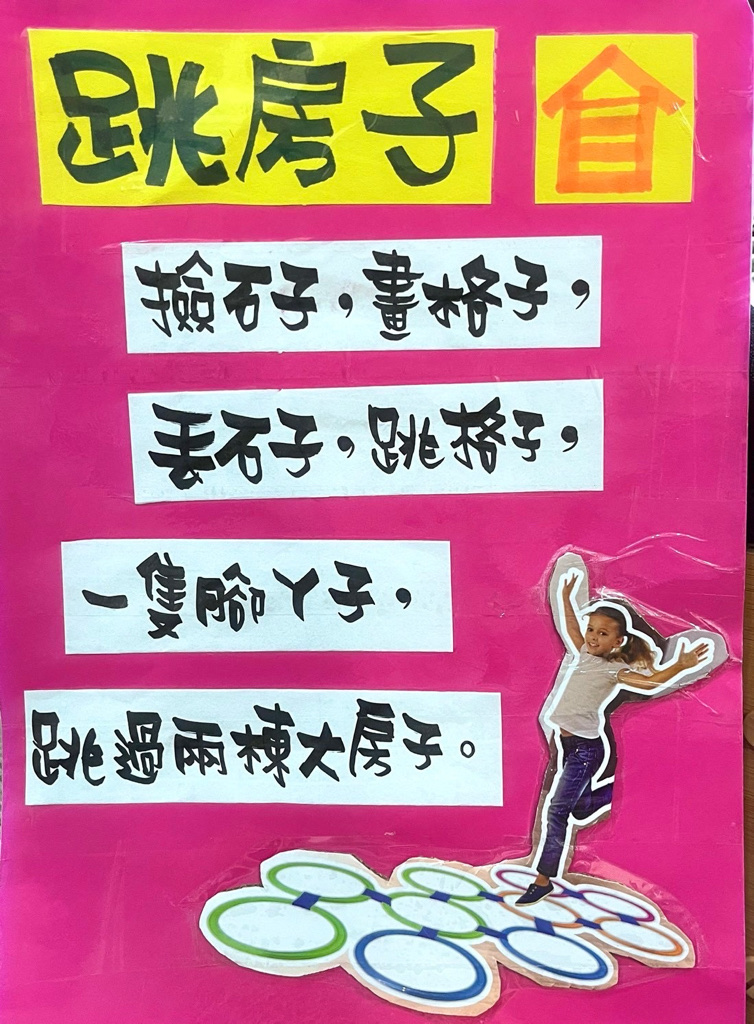 跳房子
撿石子，畫格子，
丟石子，跳格子，
一隻腳丫子，
跳過兩棟大房子。